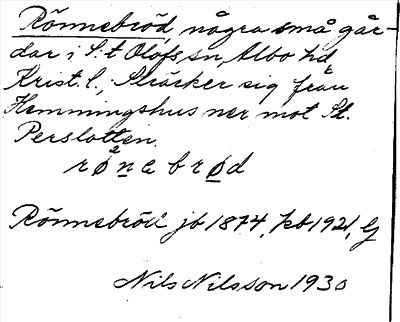 Rönnebröd, några små går-
dar i S:t Olofs sn, Albo hd
Krist. l., Sträcker sig från
Hemmingshus ner mot St.
Perslotten.
rø²nabrød
Rönnebröd jb 1874, jb 1921, G
Nils Nilsson 1930